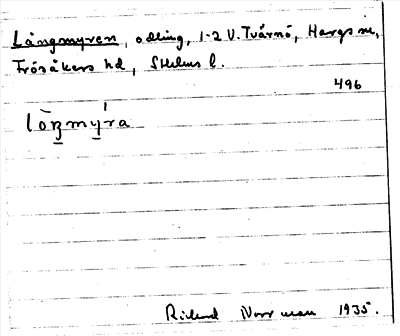 Långmyren, odling, 1-2 V. Tvärnö, Hargs sn,
Frösåkers hd, Sthlms l.
496
lòŋmýra
Rickard Norrman 1935.